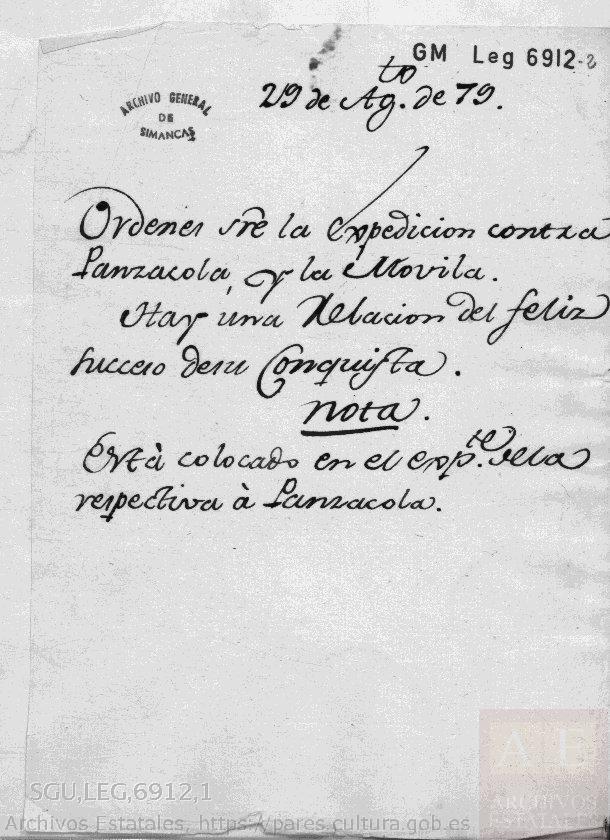 GM Leg 6912-2
29 de Ag.to de 79.
ARCHIVO GENERAL
DE
SIMANCAS
Ordenes sre la expedicion contra
Panzacola, y la Movila.
Hay una Relacion del feliz
succeso desu Conquista.
nota.
Està colocado en el exp.te dela
respectiva à Panzacola.
SGU,LEG,6912,1
AE
ARCHIVOS
ESTATALES
Archivos Estatales, https://pares.cultura.gob.es